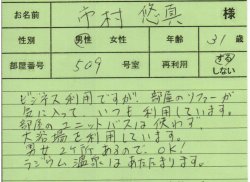 お名前 市村 悠真 様
性別 男性 女性 年齢 31 歳
部屋番号 509 号室 再利用 する しない
ビジネス利用ですが、部屋のソファーが
気に入って、いつも利用しています。
部屋のユニットバスは使わず、
大浴場を利用しています。
男女2ヶ所あるので、OK!
ラジウム温泉はあたたまります。